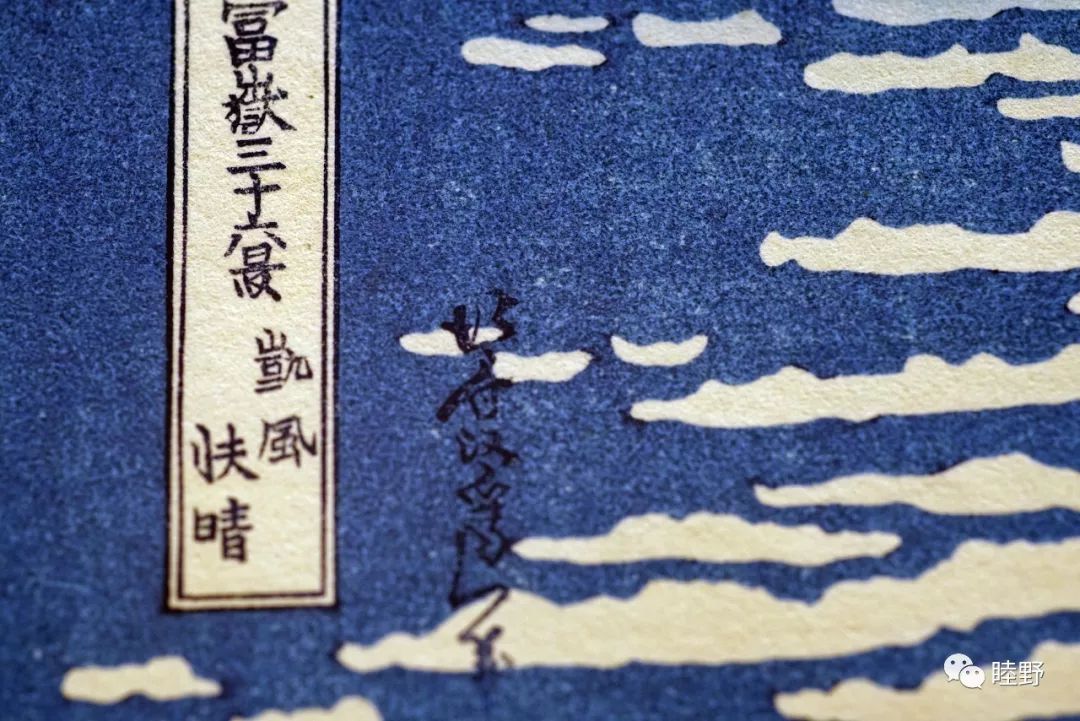 冨嶽三十六景 凱風
快晴
北斎改為一筆
睦野